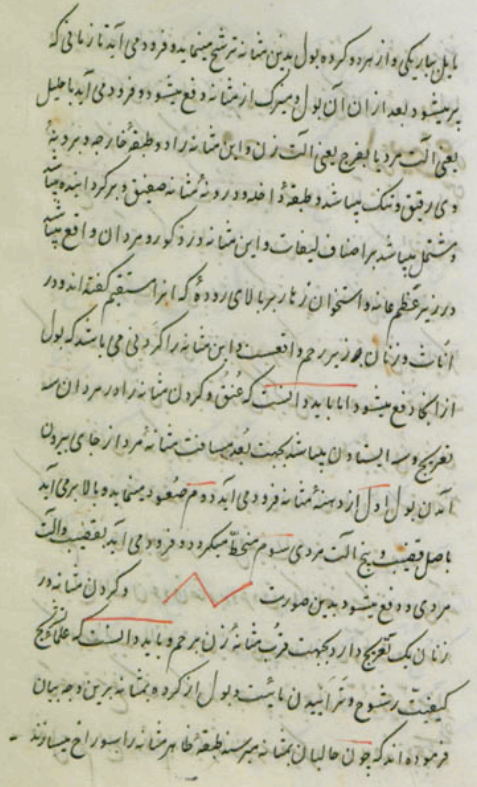 مایل بباریکی و از هر دو گرده بول بدین مثانه ترشح مینماید و فرود می آید تا زمانی که
پر میشود بعد از ان آن بول و میزک از مثانه دفع میشود و فرود می آید باحلیل
یعنی الت مرد یا بفرج یعنی الت زن و این مثانه را دو طبقهٔ خارجه و بیرونهٔ
وی رقیق و تنک میباشد و طبقهٔ داخله و درونهٔ مثانه صفیق و
و مشتمل میباشد بر اصناف لیفات و این مثانه در ذکور و مردان واقع میباشد
در زیر عظم عانه و استخوان زهار بر بالای رودهٔ که انرا مستقیم گفته اند و در
اناث و زنان بر زبر رحم واقعست و این مثانه را گردنی می باشد که بول
از انجا دفع میشود اما باید دانست که عُنق و گردن مثانه را در مردان سه
تعریج و سه ایستادن میباشد بجهت بُعد مسافت مثانهٔ مرد از جای بیرون
آمدن بول اول از دهنهٔ مثانه فرود می آید دوم صُعود مینماید و بالا بر می آید
باصل قضیب و بیخ الت مردی سوم منحطّ میگردد و فرود می آید بقضیب و الت
مردی و دفع میشود بدین صورت و گردن مثانه در
زنان یک تعریج دارد بجهت قرب مثانهٔ زن برحم و باید دانست که علما
کیفیّت رشوح و ترابیدن مائیت و بول از گرده بمثانه برین وجه بیان
فرموده اند که چون حالبان بمثانه میرسند طبقهٔ ظاهر مثانه را سوراخ میسازند